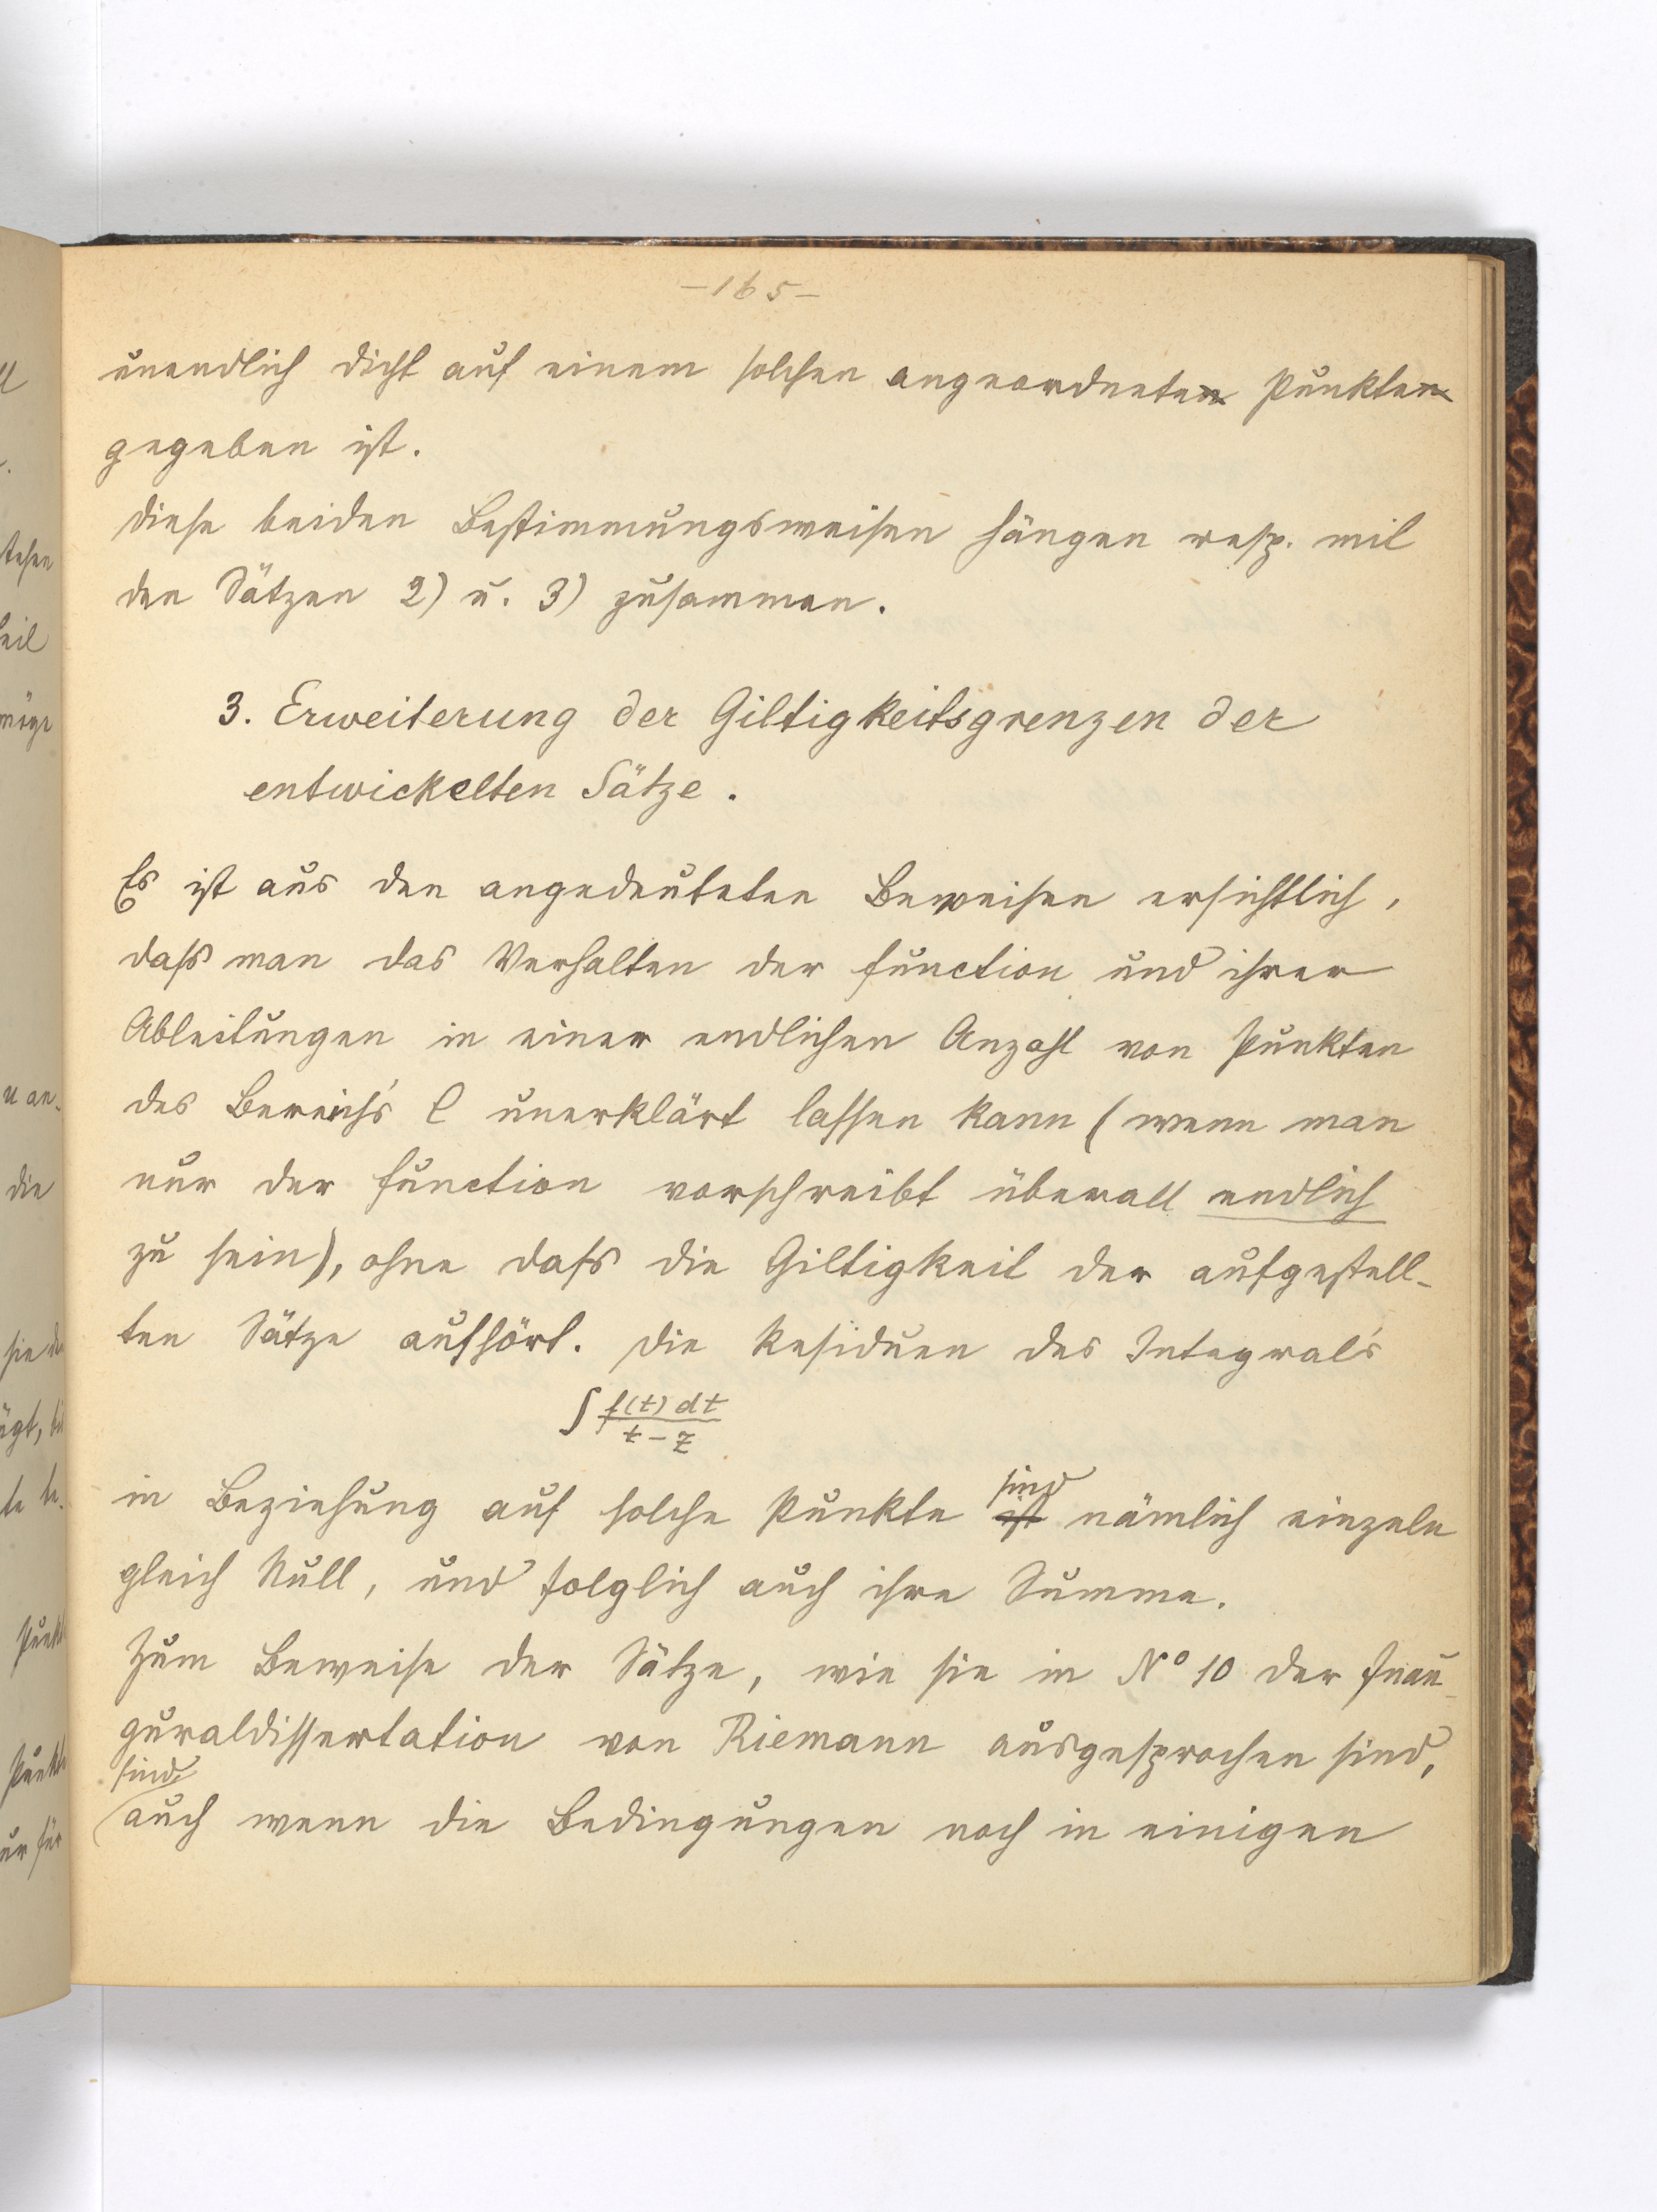 -165-
unendlich dicht auf einem solchen angeordneten Punkten
gegeben ist.
Diese beiden Bestimmungsweisen hängen resp. mit
den Sätzen 2) u. 3) zusammen.
3. Erweiterung der Giltigkeitsgrenzen der
entwickelten Sätze.
Es ist aus den angedeuteten Beweisen ersichtlich,
dass man das Verhalten der Function und ihrer
Ableitungen in einer endlichen Anzahl von Punkten
des Bereich's C unerklärt lassen kann (wenn man
nur der Function vorschreibt überall endlich
zu sein), ohne dass die Giltigkeit der aufgestell-
ten Sätze aufhört. Die Residuen des Integral's
∫ f(t) dt / t - z
sind
in Beziehung auf solche Punkte ist nämlich einzeln
gleich Null, und folglich auch ihre Summe.
Zum Beweise der Sätze, wie sie in Nº 10 der Inau-
guraldissertation von Riemann ausgesprochen sind,
sind
auch wenn die Bedingungen noch in einigen